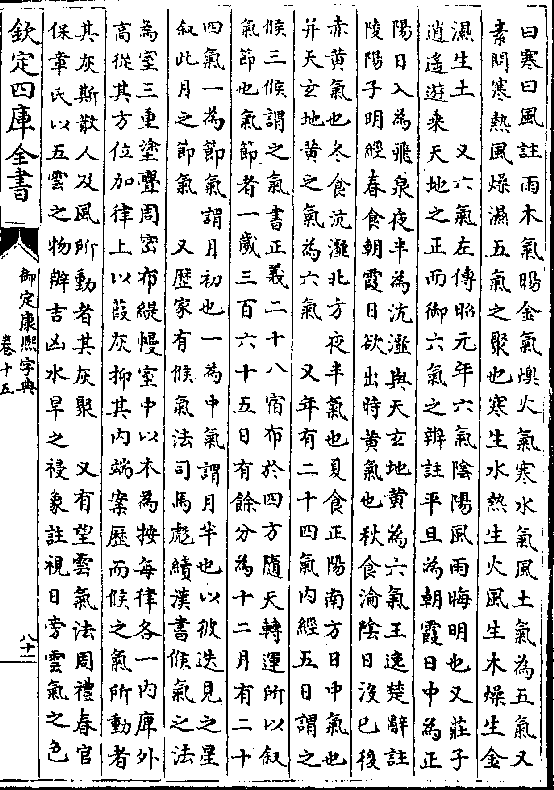 曰寒曰風註雨木氣暘金氣燠火氣寒水氣風土氣為五氣又
素問寒熱風燥濕五氣之聚也寒生水熱生火風生木燥生金
濕生土　又六氣左傳昭元年六氣陰陽風雨晦明也又莊子
逍遙遊乗天地之正而御六氣之辨註平旦為朝霞日中為正
陽日入為飛泉夜半為沆瀣與天玄地黄為六氣王逸楚辭註
陵陽子明經春食朝霞日欲出時黄氣也秋食淪陰日沒已後
赤黄氣也冬食沆瀣北方夜半氣也夏食正陽南方日中氣也
并天玄地黄之氣為六氣　又年有二十四氣内經五日謂之
候三候謂之氣書正義二十八宿布於四方隨天轉運所以叙
氣節也氣節者一歲三百六十五日有餘分為十二月有二十
四氣一為節氣謂月初也一為中氣謂月半也以彼迭見之星
叙此月之節氣　又歴家有候氣法司馬彪續漢書候氣之法
為室三重塗釁周密布緹幔室中以木為按每律各一内庫外
高從其方位加律上以葭灰抑其内端案歴而候之氣所動者
其灰斯散人及風所動者其灰聚　又有望雲氣法周禮春官
保章氏以五雲之物辨吉凶水旱之祲象註視日旁雲氣之色
欽定四庫全書
御定康熙字典
卷十五
八十一